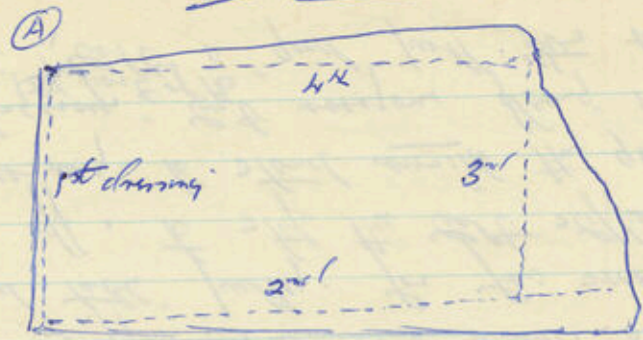 A
4th
1st dressing
3rd
2nd